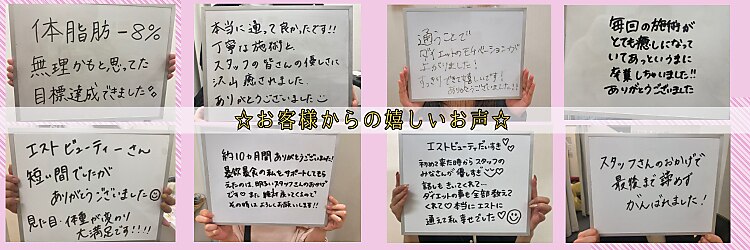 体脂肪-8%
無理かもと思ってた
目標達成できました
本当に通って良かったです!!
丁寧な施術と、
スタッフの皆さんの優しさに
沢山癒されました
ありがとうございました
通うことで
ダイエットのモチベーションが
上がりました!
すっきりできて嬉しいです!
ありがとうございました!!
毎回の施術が
とても癒しになって
いてあっというまに
卒業しちゃいました!!
ありがとうございました
☆お客様からの嬉しいお声☆
エストビューティーさん
短い間でしたが
ありがとうございました
見た目・体重が変わり
大満足です!!!!
約10ヵ月間ありがとうございました!
暴飲暴食の私をサポートしてもら
えたのは、明るいスタッフさんのおかげ
です♡また絶対戻ってくるので
その時はよろしくお願いします!!
エストビューティだいすき♡
初めて来た時からスタッフの
みなさんが優しすぎ
話しもきいてくれて…
ダイエットの事を全部教えて
くれて♡本当にエストに
通えて私幸せでした♡
スタッフさんのおかげで
最後まで諦めず
がんばれました!